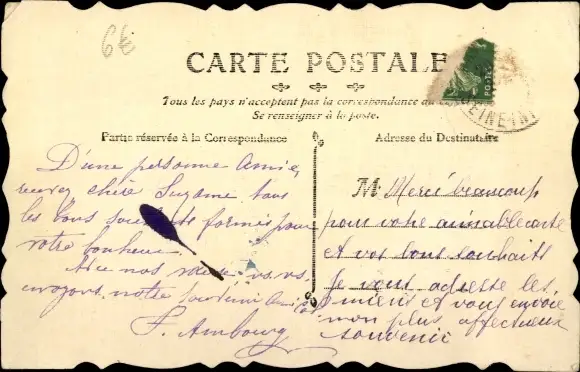 6€
CARTE POSTALE
Tous les pays n'acceptent pas la correspondance au
Se renseigner à la poste.
Partie réservée à la Correspondance
D'une personne Amie,
recevez chère Suzanne tous
les bons souhaits formés pour
votre bonheur.
Avec nos vœux
envoyons notre souvenir
F. Ambourg
Adresse du Destinataire
M. Merci beaucoup
pour votre aimable carte
et vos bons souhaits
Je vous adresse les
miens et vous envoie
mon plus affectueux
souvenir